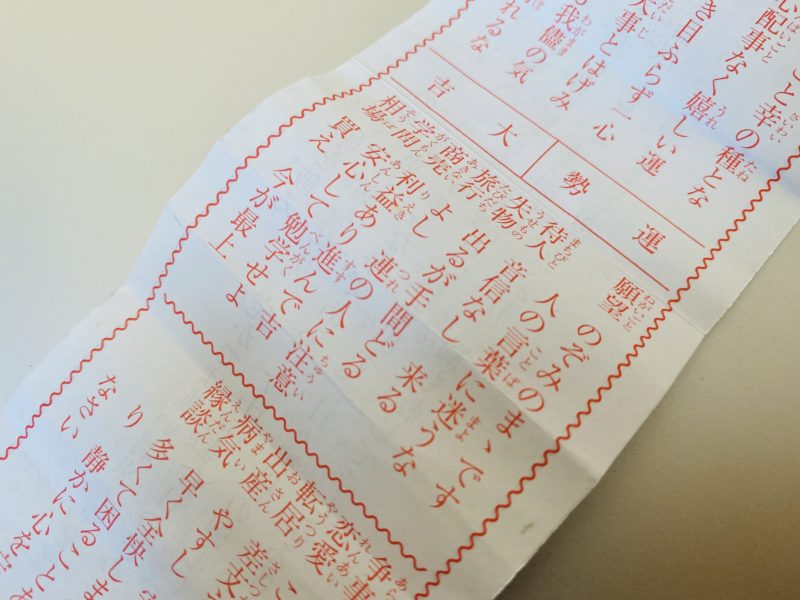 こと幸の種とな
心配事なく嬉しい運
き目ふらず一心
大事とはげみ
我儘の気
れるな
運勢 大吉
願望 のぞみのまゝです
人の言葉に迷うな
待人 音信なし 来る
失物 出るが手間どる
旅行 よし 連の人に注意
商売 利益あり進んで吉
学問 安心して勉学せよ
相場 買え 今が最上
争事
恋愛 こ
転居 差支
出産 やすし
病気 早く全快しま
縁談 多くて困ることあ
り 静かに心を
なさい